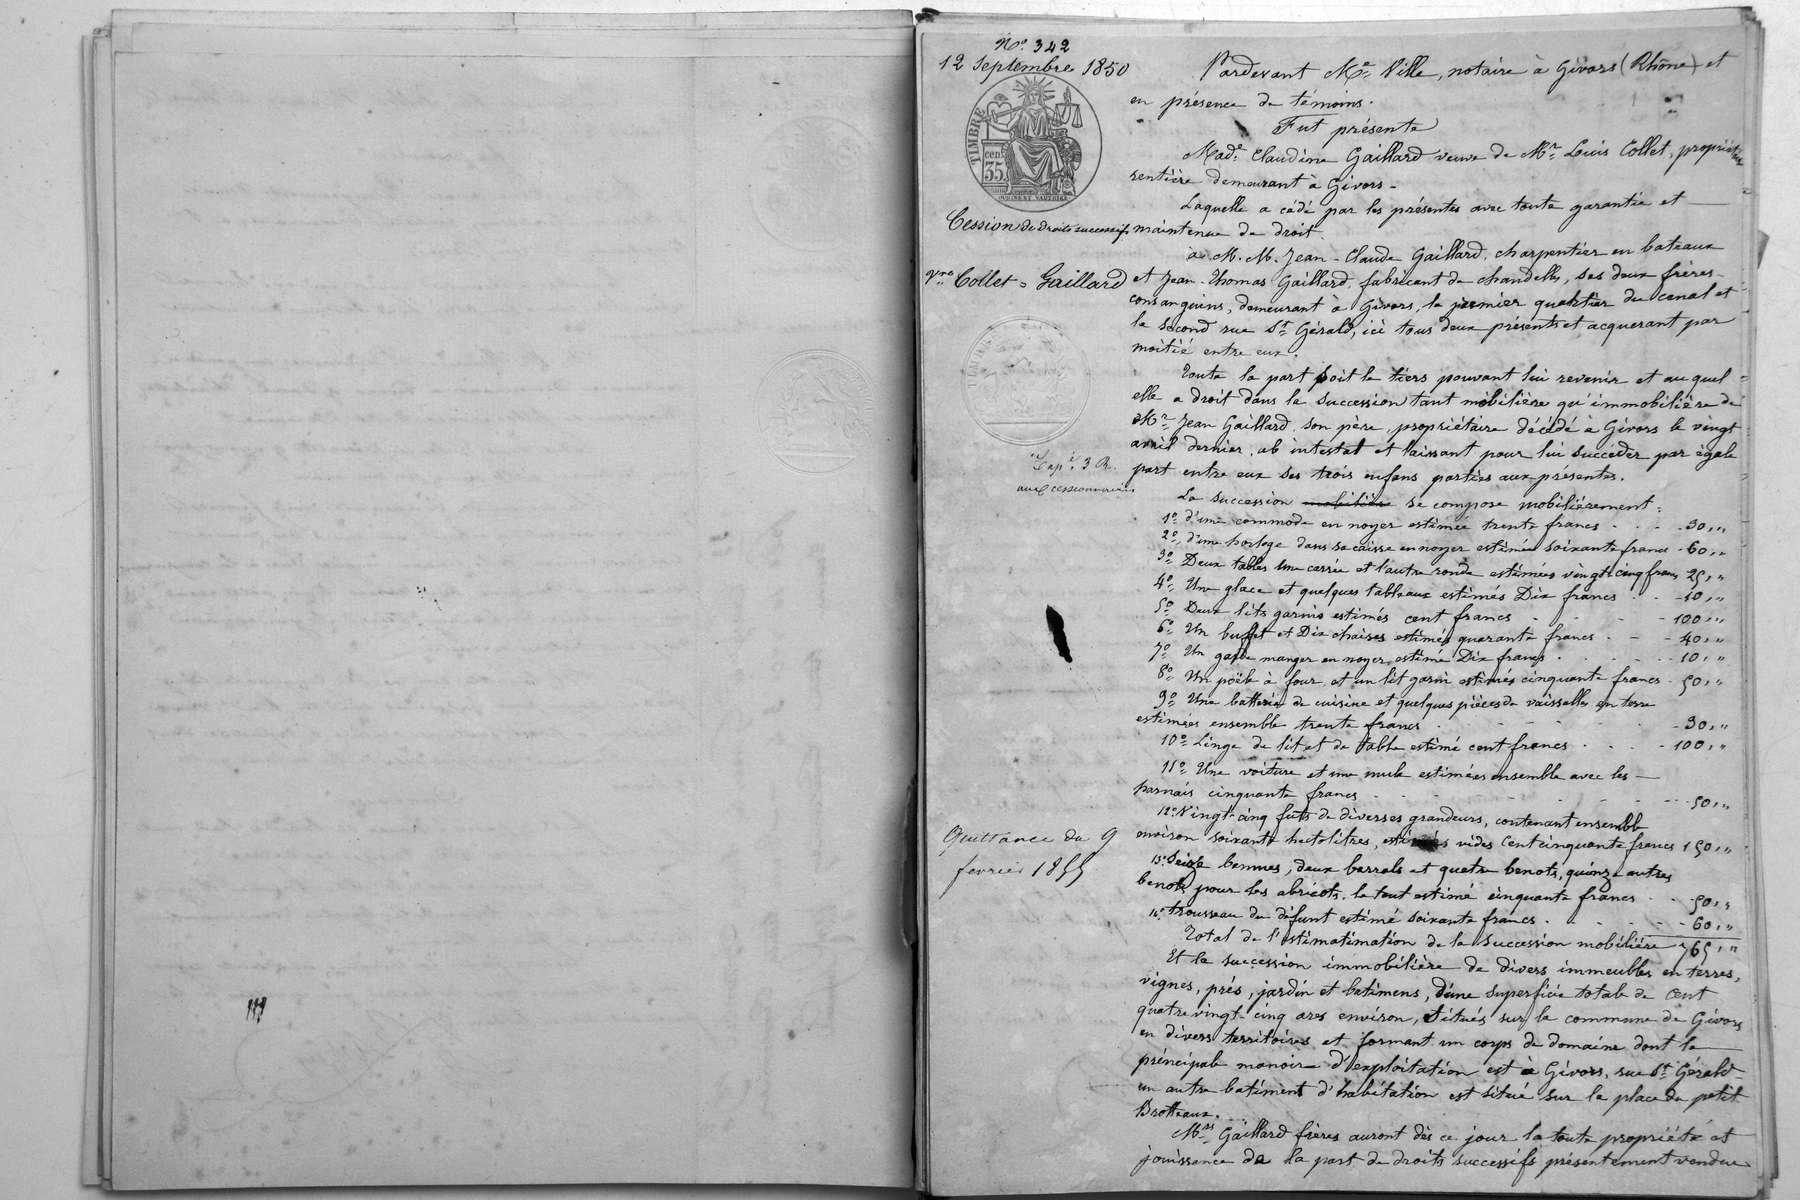 N° 342
12 Septembre 1850
TIMBRE
cen. 35.
Cession de droits successifs
Vve Collet = Gaillard
Expé. 3 R.
aux cessionnaires
Quittance du 9
fevrier 1855
Pardevant Me Ville, notaire à Givors (Rhône) et
en présence de témoins.
Fut présente
Made Claudine Gaillard veuve de Mr Louis Collet, propriétaire
rentière demeurant à Givors -
Laquelle a cédé par les présentes avec toute garantie et
maintenue de droit.
à M. M. Jean-Claude Gaillard, charpentier en bateaux
et Jean-Thomas Gaillard, fabricant de chandelles, ses deux frères
consanguins, demeurant à Givors, le premier quartier du canal et
le second rue St Gérald, ici tous deux présents et acquerant par
moitié entre eux.
Toute la part soit le tiers pouvant lui revenir et au quel
elle a droit dans la succession tant mobilière qu'immobilière de
Mr Jean Gaillard, son père, propriétaire décédé à Givors le vingt
avril dernier, ab intestat et laissant pour lui succéder par égale
part entre eux ses trois enfans parties aux présentes.
La succession mobilière se compose mobilièrement :
1° d'une commode en noyer estimée trente francs . . . 30,"
2° d'une horloge dans sa caisse en noyer estimée soixante francs . 60,"
3° Deux tables une carrée et l'autre ronde estimées vingt-cinq francs 25,"
4° Une glace et quelques tableaux estimés Dix francs . . 10,"
5° Deux lits garnis estimés cent francs . . . 100,"
6° Un buffet et Dix chaises estimés quarante francs . - 40,"
7° Un garde manger en noyer estimé Dix francs . . . 10,"
8° Un poële à four, et un lit garni estimés cinquante francs . 50,"
9° Une batterie de cuisine et quelques pièces de vaisselle en terre
estimées ensemble trente francs . . . 30,"
10° Linge de lit et de table estimé cent francs . . . 100,"
11° Une voiture et une mule estimées ensemble avec les
harnais cinquante francs . . . 50,"
12° Vingt-cinq fûts de diverses grandeurs, contenant ensemble
environ soixante hectolitres, estimés vides Cent cinquante francs 150,"
13° Seize bennes, deux barrals et quatre benots, quinze autres
benots pour les abricots, le tout estimé cinquante francs . . 50,"
14° trousseau du défunt estimé soixante francs . . . 60,"
Total de l'estimatimation de la succession mobilière 765,"
Et la succession immobilière de divers immeubles en terres,
vignes, prés, jardin et batimens, d'une superficie totale de cent
quatrevingt-cinq ares environ, situés sur la commune de Givors
en divers territoires et formant un corps de domaine dont le
principal manoir d'exploitation est à Givors, rue St Gérald
un autre batiment d'habitation est situé sur la place du petit
Brotteaux.
Mrs Gaillard frères auront dès ce jour la toute propriété et
jouissance de la part de droits successifs présentement vendue